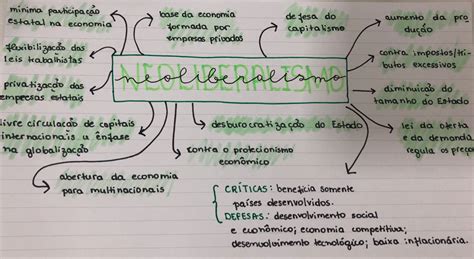 mínima participação
estatal na economia
flexibilização das
leis trabalhistas
privatização das
empresas estatais
livre circulação de capitais
internacionais a ênfase
na globalização
abertura da economia
para multinacionais
base da economia
formada por
empresas privadas
defesa do
capitalismo
NEOLIBERALISMO
neoliberalismo
desburocratização do Estado
contra o protecionismo
econômico
aumento da pro
dução
contra impostos/tri
butos excessivos
diminuição do
tamanho do Estado
lei da oferta
e da demanda
regula os preços
CRÍTICAS: beneficia somente
países desenvolvidos.
DEFESAS: desenvolvimento social
e econômico; economia competitiva;
desenvolvimento tecnológico; baixa inflacionária.